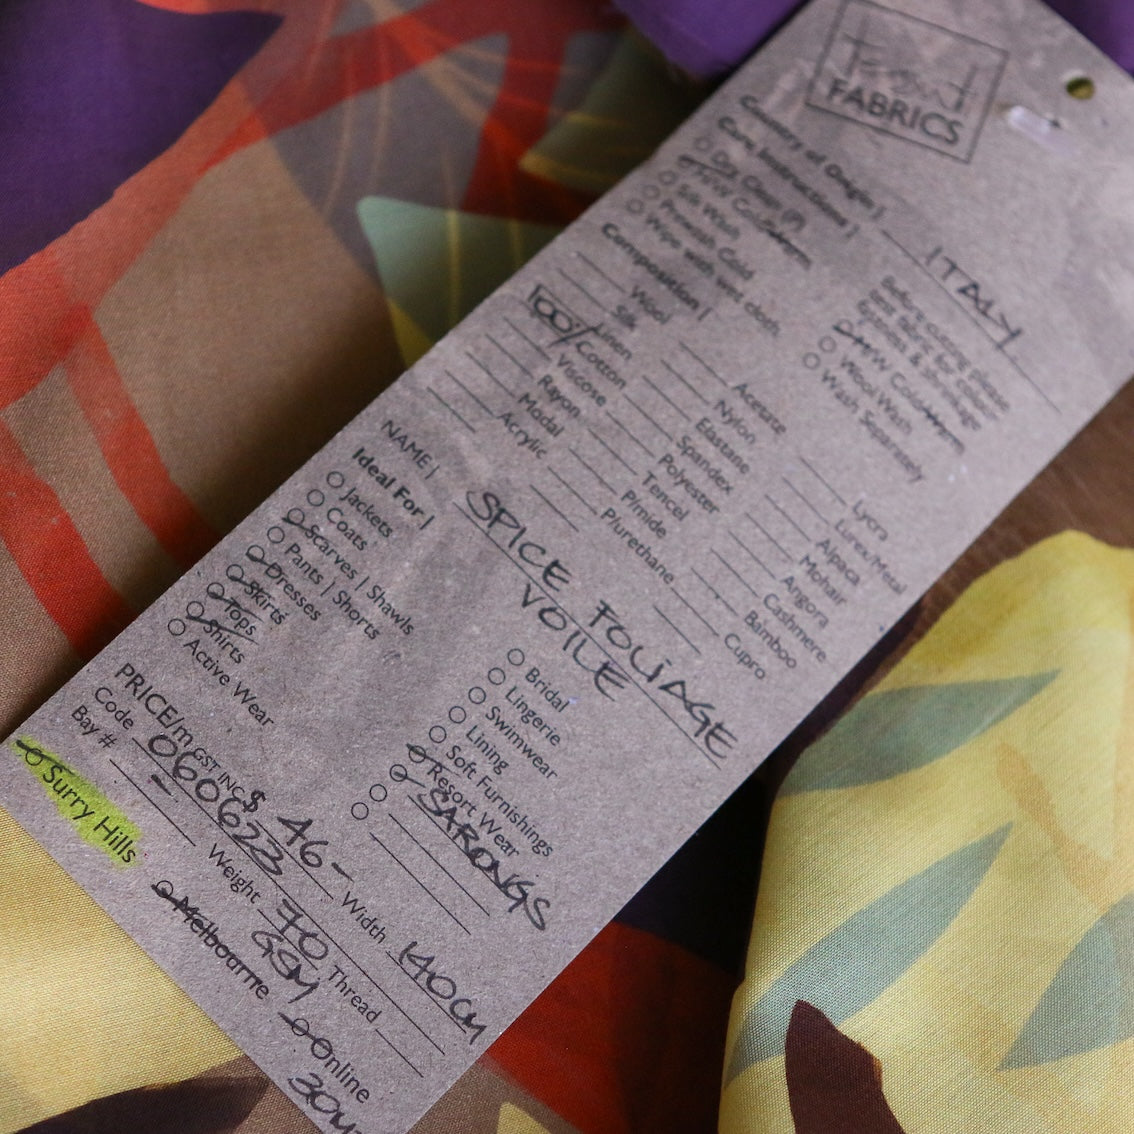 Tessuti
FABRICS
Country of Origin | ITALY
Care Instructions |
Dry Clean (P)
H/W Cold/warm
Silk Wash
Prewash Cold
Wipe with wet cloth
Before cutting please
test fabric for colour
fastness & shrinkage
M/W Cold/warm
Wool Wash
Wash Separately
Composition |
Wool
Silk
Linen
100% Cotton
Viscose
Rayon
Modal
Acrylic
Acetate
Nylon
Elastane
Spandex
Polyester
Tencel
P/mide
P/urethane
Lycra
Lurex/Metal
Alpaca
Mohair
Angora
Cashmere
Bamboo
Cupro
NAME | SPICE FOLIAGE
VOILE
Ideal For |
Jackets
Coats
Scarves | Shawls
Pants | Shorts
Dresses
Skirts
Tops
Shirts
Active Wear
Bridal
Lingerie
Swimwear
Lining
Soft Furnishings
Resort Wear
SARONGS
PRICE/m GST INC $ 46- Width 140cm
Code 060623 Weight 70 GSM Thread
Bay #
Surry Hills Melbourne Online